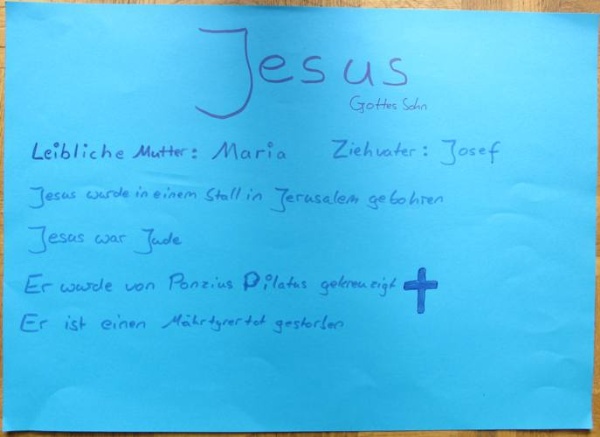 Jesus
Gottes Sohn
Leibliche Mutter: Maria Ziehvater: Josef
Jesus wurde in einem Stall in Jerusalem gebohren
Jesus war Jude
Er wurde von Ponzius Pilatus gekreuzigt
Er ist einen Mährtyrertot gestorben